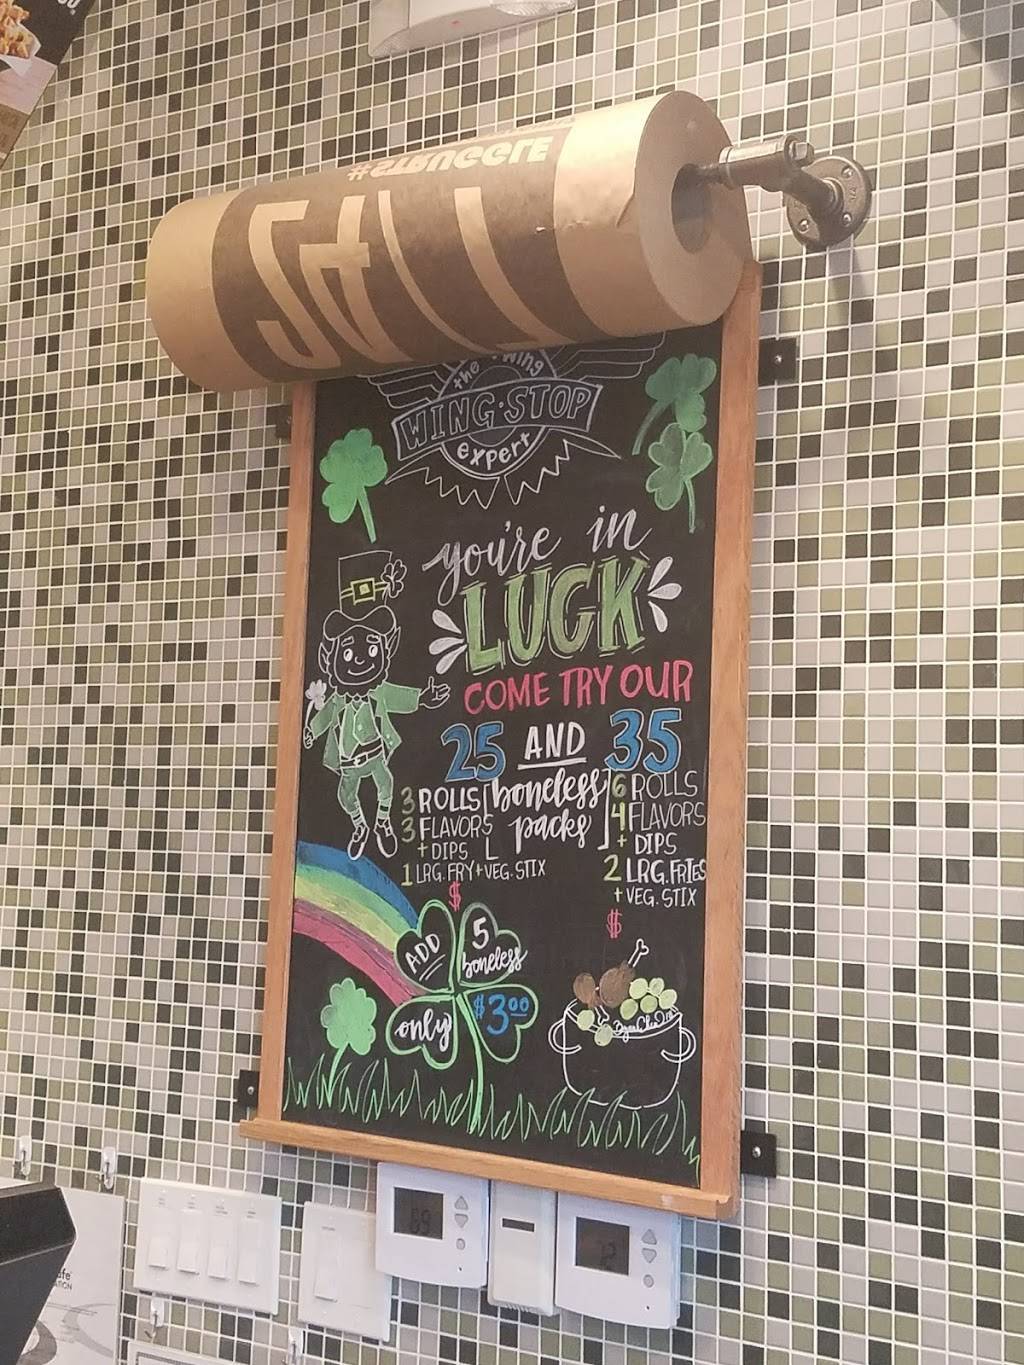 #STRUGGLE
the wing
WING·STOP
expert
you're in
LUCK
COME TRY OUR
25 AND 35
boneless
packs
3 ROLLS
3 FLAVORS
+ DIPS
1 LRG. FRY + VEG. STIX
$
6 ROLLS
4 FLAVORS
+ DIPS
2 LRG. FRIES
+ VEG. STIX
$
ADD
5
boneless
only
$3.00
69
72